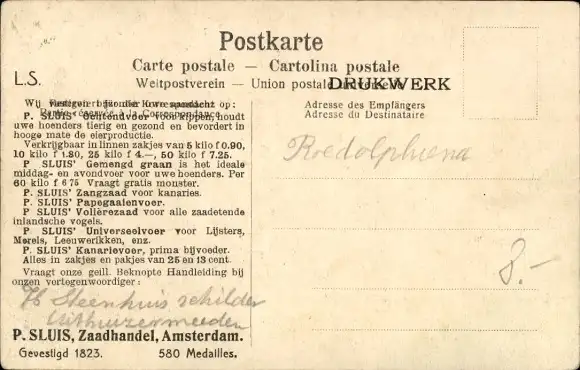 Postkarte
Carte postale — Cartolina postale
Weltpostverein — Union postale universelle
DRUKWERK
L.S.
Wij vestigen bijzonder Uwe aandacht op:
P. SLUIS' Ochtendvoer voor kippen, houdt
uwe hoenders tierig en gezond en bevordert in
hooge mate de eierproductie.
Verkrijgbaar in linnen zakjes van 5 kilo f 0.90,
10 kilo f 1.80, 25 kilo f 4.—, 50 kilo f 7.25.
P. SLUIS' Gemengd graan is het ideale
middag- en avondvoer voor uwe hoenders. Per
60 kilo f 6 75 Vraagt gratis monster.
P. SLUIS' Zangzaad voor kanaries.
P. SLUIS' Papegaaienvoer.
P. SLUIS' Volièrezaad voor alle zaadetende
inlandsche vogels.
P. SLUIS' Universeelvoer voor Lijsters,
Merels, Leeuwerikken, enz.
P. SLUIS' Kanarievoer, prima bijvoeder.
Alles in zakjes en pakjes van 25 en 13 cent.
Vraagt onze geïll. Beknopte Handleiding bij
onzen vertegenwoordiger:
Steenhuis schilder
Uithuizermeeden
P. SLUIS, Zaadhandel, Amsterdam.
Gevestigd 1823. 580 Medailles.
Partie réservée à la Correspondance
Adresse des Empfängers
Adresse du Destinataire
8.-